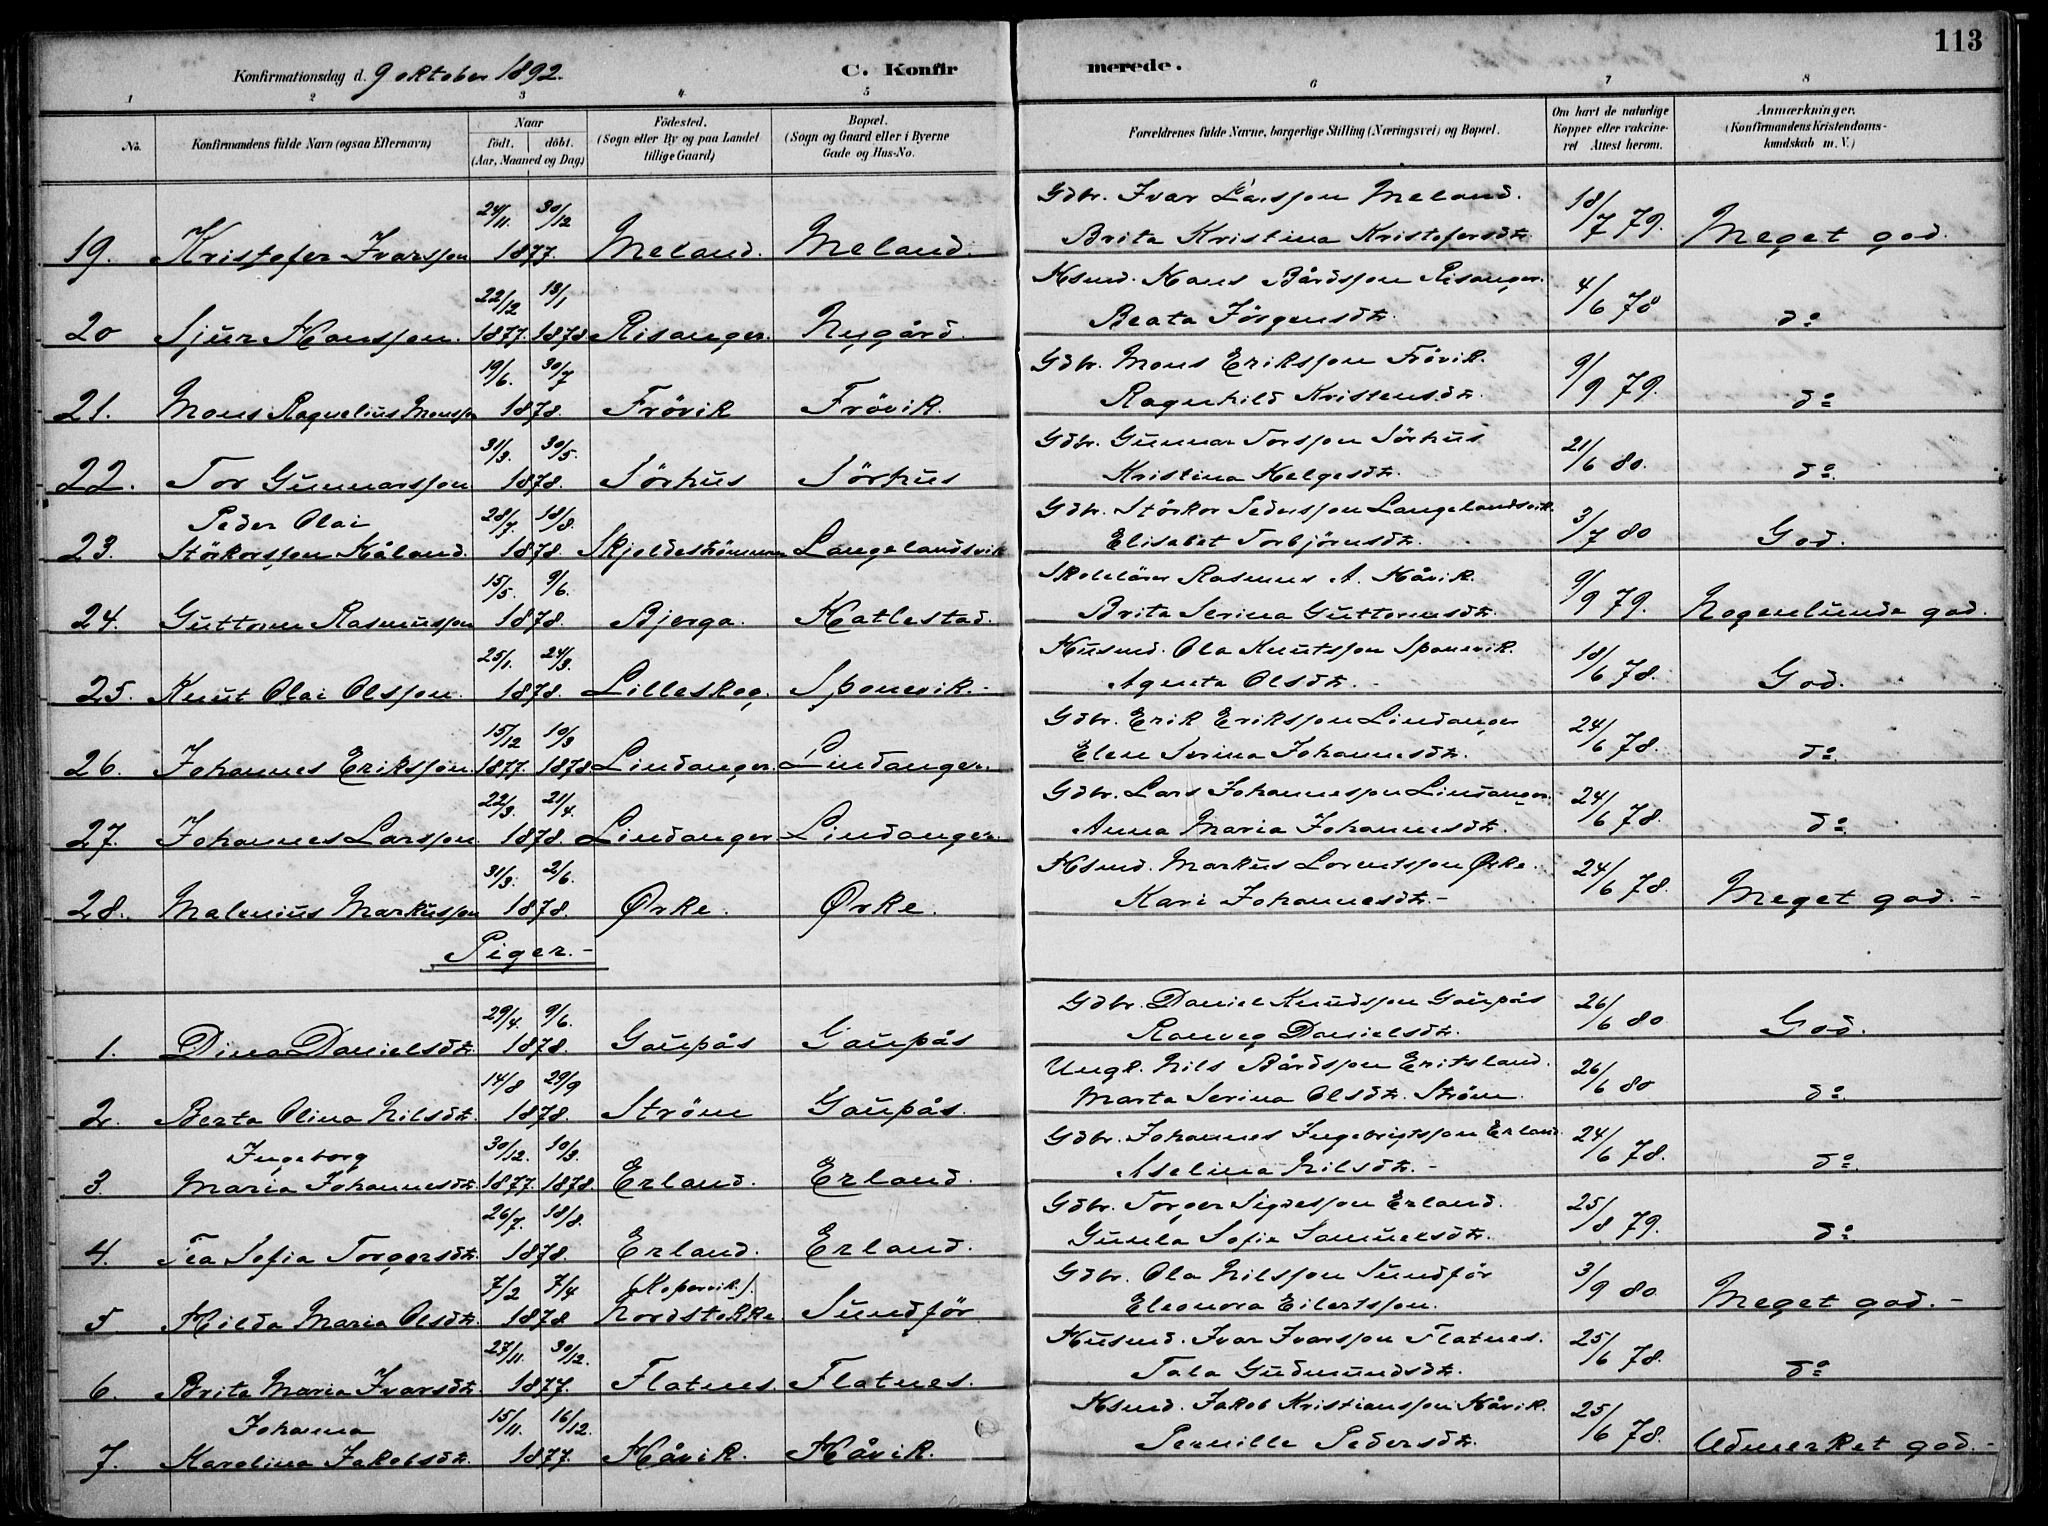 113
Konfirmationsdag d. 9 oktober 1892.
C. Konfirmerede.
1 2 3 4 5 6 7 8
No. Konfirmandens fulde Navn (ogsaa Efternavn) Naar født. døbt. (Aar, Maaned og Dag) Fødested. (Sogn eller By og paa Landet tillige Gaard) Bopæl. (Sogn og Gaard eller i Byerne Gade og Hus-No. Forældrenes fulde Navne, borgerlige Stilling (Næringsvei) og Bopæl. Om havt de naturlige Kopper eller vakcineret Attest herom. Anmærkninger, (Konfirmandens Kristendomskundskab m. V.)
24/11. 30/12 Gdbr. Ivar Larsson Meland. 18/7 79.
19. Kristofer Ivarsson 1877. Meland. Meland. Brita Kristina Kristofersdtr. Meget god.
22/12 13/1 Hsmd. Hans Bårdsson Risanger. 4/6 78
20 Sjur Hansson. 1877. 1878 Risanger. Nygård. Beata Jörgensdtr. do
19/6. 30/7 Gdbr. Mons Eriksson Frövik. 9/9 79.
21. Mons Ragnelius Monsson 1878. Frövik Frövik. Ragnhild Kristensdtr. do
31/3. 30/5. Gdbr. Gunnar Torsson Sörhus 21/6 80.
22. Tor Gunnarsson 1878. Sörhus Sörhus Kristina Helgesdtr. do
Peder Olai 28/7. 18/8. Gdbr. Störkor Pedersson Langelandsvik 3/7 80
23. Störkorsson Håland. 1878. Skjoldestömmen Langelandsvik Elisabet Torbjörnsdtr. God.
15/5. 9/6. Skolelärer Rasmus A. Håvik. 9/9 79.
24. Guttorm Rasmusson 1878. Bjerga. Hatlestad. Brita Serina Guttormsdtr. Nogenlunde god.
25/1. 24/3. Husmd. Ola Knutsson Sponevik. 18/6 78.
25. Knut Olai Olsson. 1878. Lilleskog. Sponevik. Agneta Olsdtr. God.
15/12 10/3 Gdbr. Erik Eriksson Lindanger 24/6 78.
26. Johannes Eriksson. 1877. 1878 Lindanger. Lindanger. Elen Serina Johannesdtr. do
22/3. 21/4. Gdbr. Lars Johannesson Lindanger. 24/6 78.
27. Johannes Larsson. 1878. Lindanger Lindanger. Anna Maria Johannesdtr. do
31/3. 2/6. Hsmd. Markus Lorentsson Ørke. 24/6 78.
28. Malenius Markusson 1878. Ørke. Ørke. Kari Johannesdtr. Meget god.
Piger.
29/4. 9/6. Gdbr. Daniel Knudsson Gaupås 26/6 80
1. Dina Danielsdtr. 1878. Gaupås Gaupås Ranveg Danielsdtr. God.
14/8 29/9 Ungk. Nils Bårdsson Eritsland. 26/6 80
2. Berta Olina Nilsdtr. 1878. Ström Gaupås. Marta Serina Olsdtr. Ström. do
Ingeborg 30/12. 10/3. Gdbr. Johannes Ingebrigtsson Erland 24/6 78.
3. Maria Johannesdtr. 1877. 1878. Erland. Erland. Aselina Nilsdtr. do
26/7. 18/8. Gdbr. Torger Sigvesson Erland. 25/8 79.
4. Tea Sofia Torgersdtr. 1878. Erland. Erland. Gunla Sofie Samuelsdtr. do
7/2 7/4 (Kopervik.) Gdbr. Ola Nilsson Sundför 3/9 80
5 Hilda Maria Olsdtr. 1878 Nordstokke Sundför. Eleonora Eilertsson. Meget god.
27/11. 30/12. Husmd. Ivar Ivarsson Flatnes. 25/6 78.
6. Brita Maria Ivarsdtr. 1877. Flatnes. Flatnes. Tala Gudmundsdtr. do
Johanna 15/11. 16/12. Hsmd. Jakob Kristiansson Håvik. 25/6 78.
7. Karolina Jakobsdtr. 1877. Håvik. Håvik. Pernille Pedersdtr. Udmerket god.